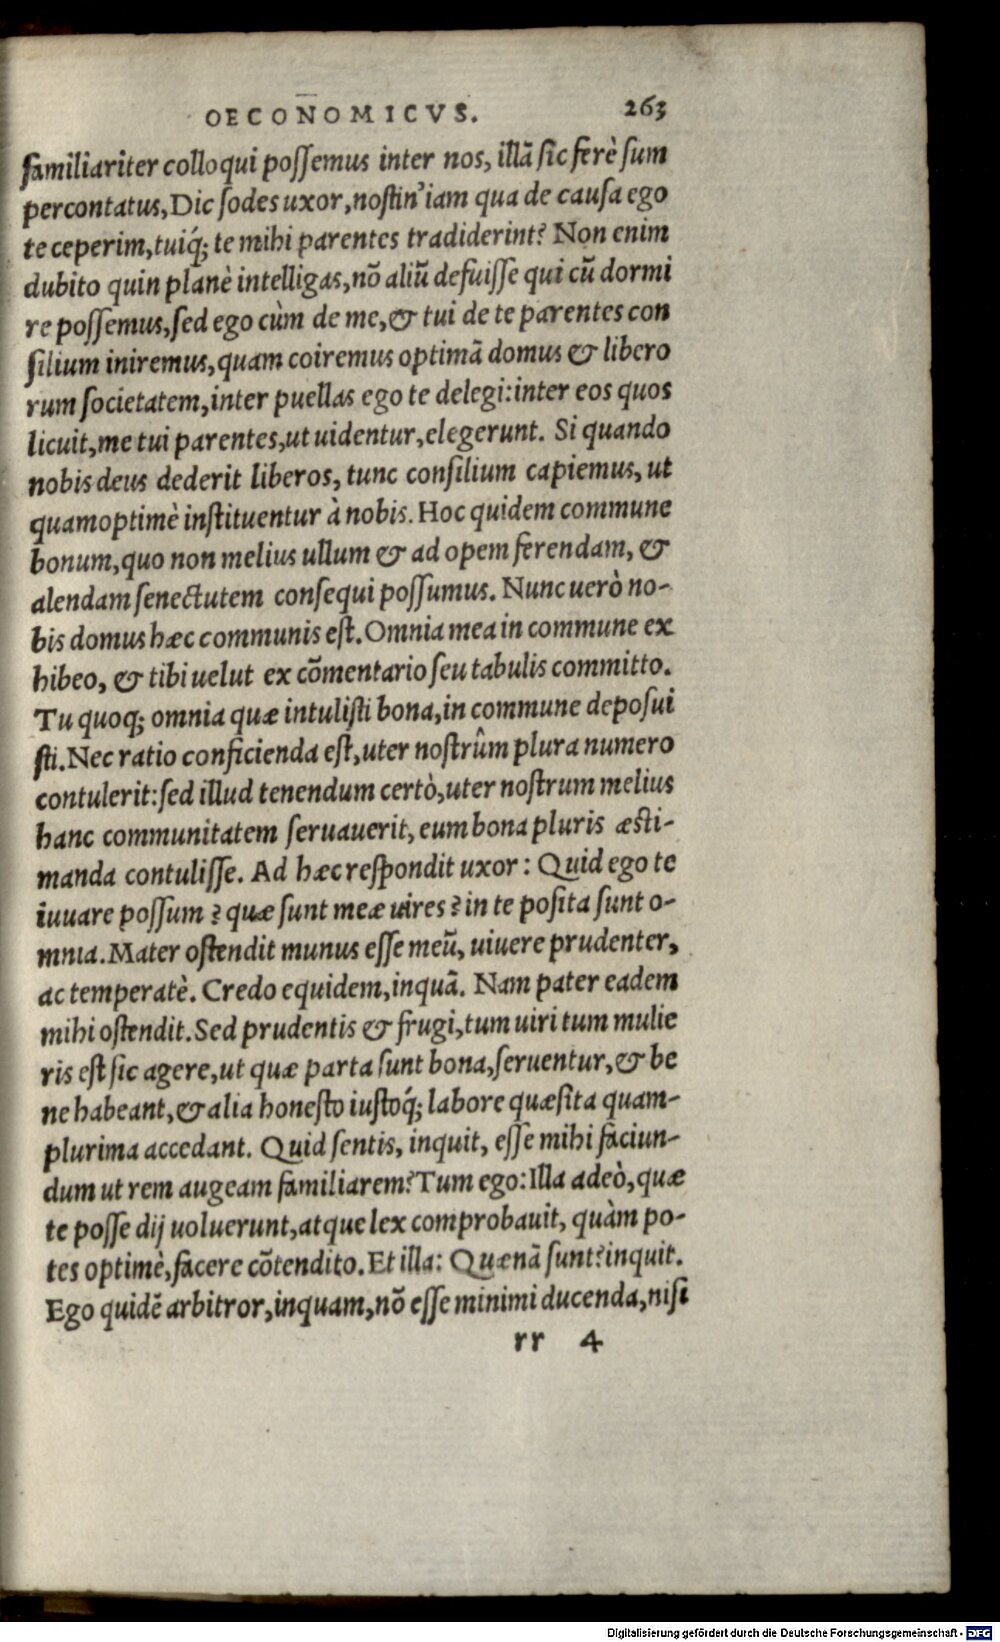 OECONOMICVS. 263
familiariter colloqui possemus inter nos, illā sic ferè sum
percontatus, Dic sodes uxor, nostin' iam qua de causa ego
te ceperim, tuiq́; te mihi parentes tradiderint? Non enim
dubito quin planè intelligas, nō aliū defuisse qui cū dormi
re possemus, sed ego cùm de me, & tui de te parentes con
silium iniremus, quam coiremus optimā domus & libero
rum societatem, inter puellas ego te delegi: inter eos quos
licuit, me tui parentes, ut uidentur, elegerunt. Si quando
nobis deus dederit liberos, tunc consilium capiemus, ut
quamoptimè instituentur à nobis. Hoc quidem commune
bonum, quo non melius ullum & ad opem ferendam, &
alendam senectutem consequi possumus. Nunc uerò no-
bis domus hæc communis est. Omnia mea in commune ex
hibeo, & tibi uelut ex cōmentario seu tabulis committo.
Tu quoq; omnia quæ intulisti bona, in commune deposui
sti. Nec ratio conficienda est, uter nostrûm plura numero
contulerit: sed illud tenendum certò, uter nostrum melius
hanc communitatem seruauerit, eum bona pluris æsti-
manda contulisse. Ad hæc respondit uxor: Quid ego te
iuuare possum? quæ sunt meæ uires? in te posita sunt o-
mnia. Mater ostendit munus esse meū, uiuere prudenter,
ac temperatè. Credo equidem, inquā. Nam pater eadem
mihi ostendit. Sed prudentis & frugi, tum uiri tum mulie
ris est sic agere, ut quæ parta sunt bona, seruentur, & be
ne habeant, & alia honesto iustoq́; labore quæsita quam-
plurima accedant. Quid sentis, inquit, esse mihi faciun-
dum ut rem augeam familiarem? Tum ego: Illa adeò, quæ
te posse dij uoluerunt, atque lex comprobauit, quàm po-
tes optimè, facere cōtendito. Et illa: Quænā sunt? inquit.
Ego quidē arbitror, inquam, nō esse minimi ducenda, nisi
rr 4
Digitalisierung gefördert durch die Deutsche Forschungsgemeinschaft - DFG